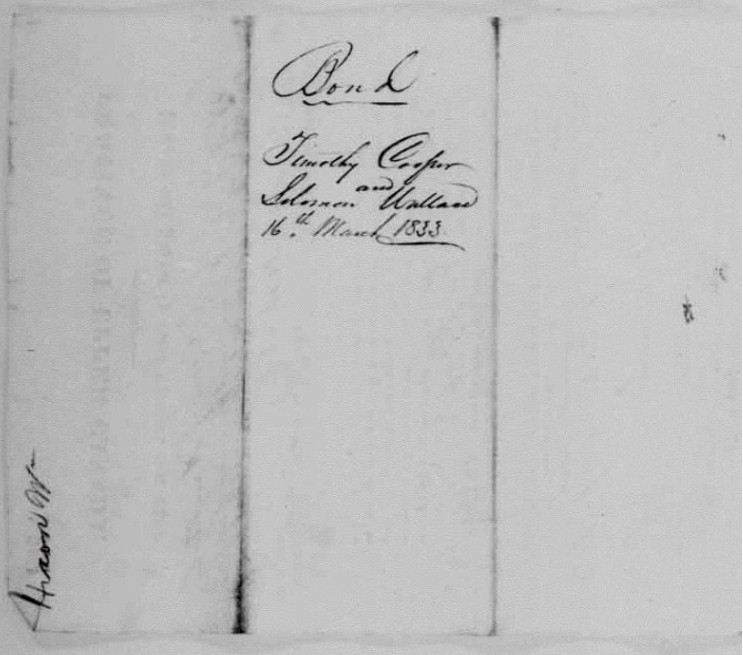 Bond
Timothy Cooper
and
Solomon Wallace
16th March 1833.
Hixon Wm